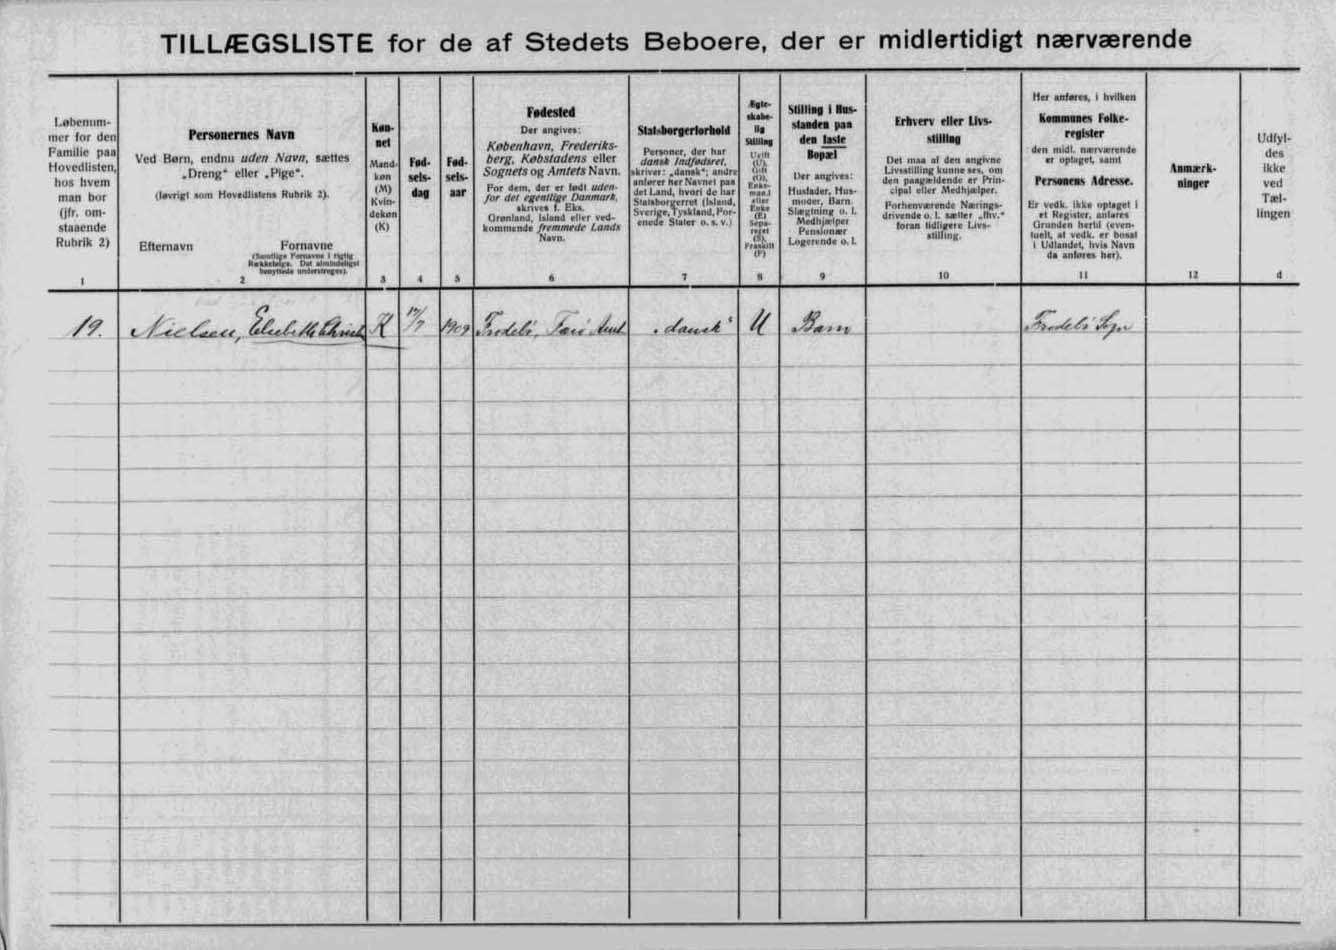 TILLÆGSLISTE for de af Stedets Beboere, der er midlertidigt nærværende
Løbenum-
mer for den
Familie paa
Hovedlisten,
hos hvem
man bor
(jfr. om-
staaende
Rubrik 2)
1
Personernes Navn
Ved Børn, endnu uden Navn, sættes
„Dreng“ eller „Pige“.
(Iøvrigt som Hovedlistens Rubrik 2).
Efternavn
Fornavne
(Samtlige Fornavne i rigtig
Rækkefølge. Det almindeligst
benyttede understreges).
2
Køn-
net
Mand-
køn
(M)
Kvin-
dekøn
(K)
3
Fød-
sels-
dag
4
Fød-
sels-
aar
5
Fødested
Der angives:
København, Frederiks-
berg, Købstadens eller
Sognets og Amtets Navn.
For dem, der er født uden-
for det egentlige Danmark,
skrives f. Eks.
Grønland, Island eller ved-
kommende fremmede Lands
Navn.
6
Statsborgerforhold
Personer, der har
dansk Indfødsret,
skriver: „dansk“; andre
anfører her Navnet paa
det Land, hvori de har
Statsborgerret (Island,
Sverige, Tyskland, For-
enede Stater o. s. v.)
7
Ægte-
skabe-
lig
Stilling
Ugift
(U),
Gift
(G),
Enke-
mand
eller
Enke
(E)
Sepa-
reret
(S),
Fraskilt
(F)
8
Stilling i Hus-
standen paa
den faste
Bopæl
Der angives:
Husfader, Hus-
moder, Barn,
Slægtning o. l.
Medhjælper
Pensionær
Logerende o. l.
9
Erhverv eller Livs-
stilling
Det maa af den angivne
Livsstilling kunne ses, om
den paagældende er Prin-
cipal eller Medhjælper.
Forhenværende Nærings-
drivende o. l. sætter „fhv.“
foran tidligere Livs-
stilling.
10
Her anføres, i hvilken
Kommunes Folke-
register
den midl. nærværende
er optaget, samt
Personens Adresse.
Er vedk. ikke optaget i
et Register, anføres
Grunden hertil (even-
tuelt, at vedk. er bosat
i Udlandet, hvis Navn
da anføres her).
11
Anmærk-
ninger
12
Udfyl-
des
ikke
ved
Tæl-
lingen
d
19. Nielsen, K 1909 Frodebø, Færø Amt „dansk“ U Barn Frodebø Sogn